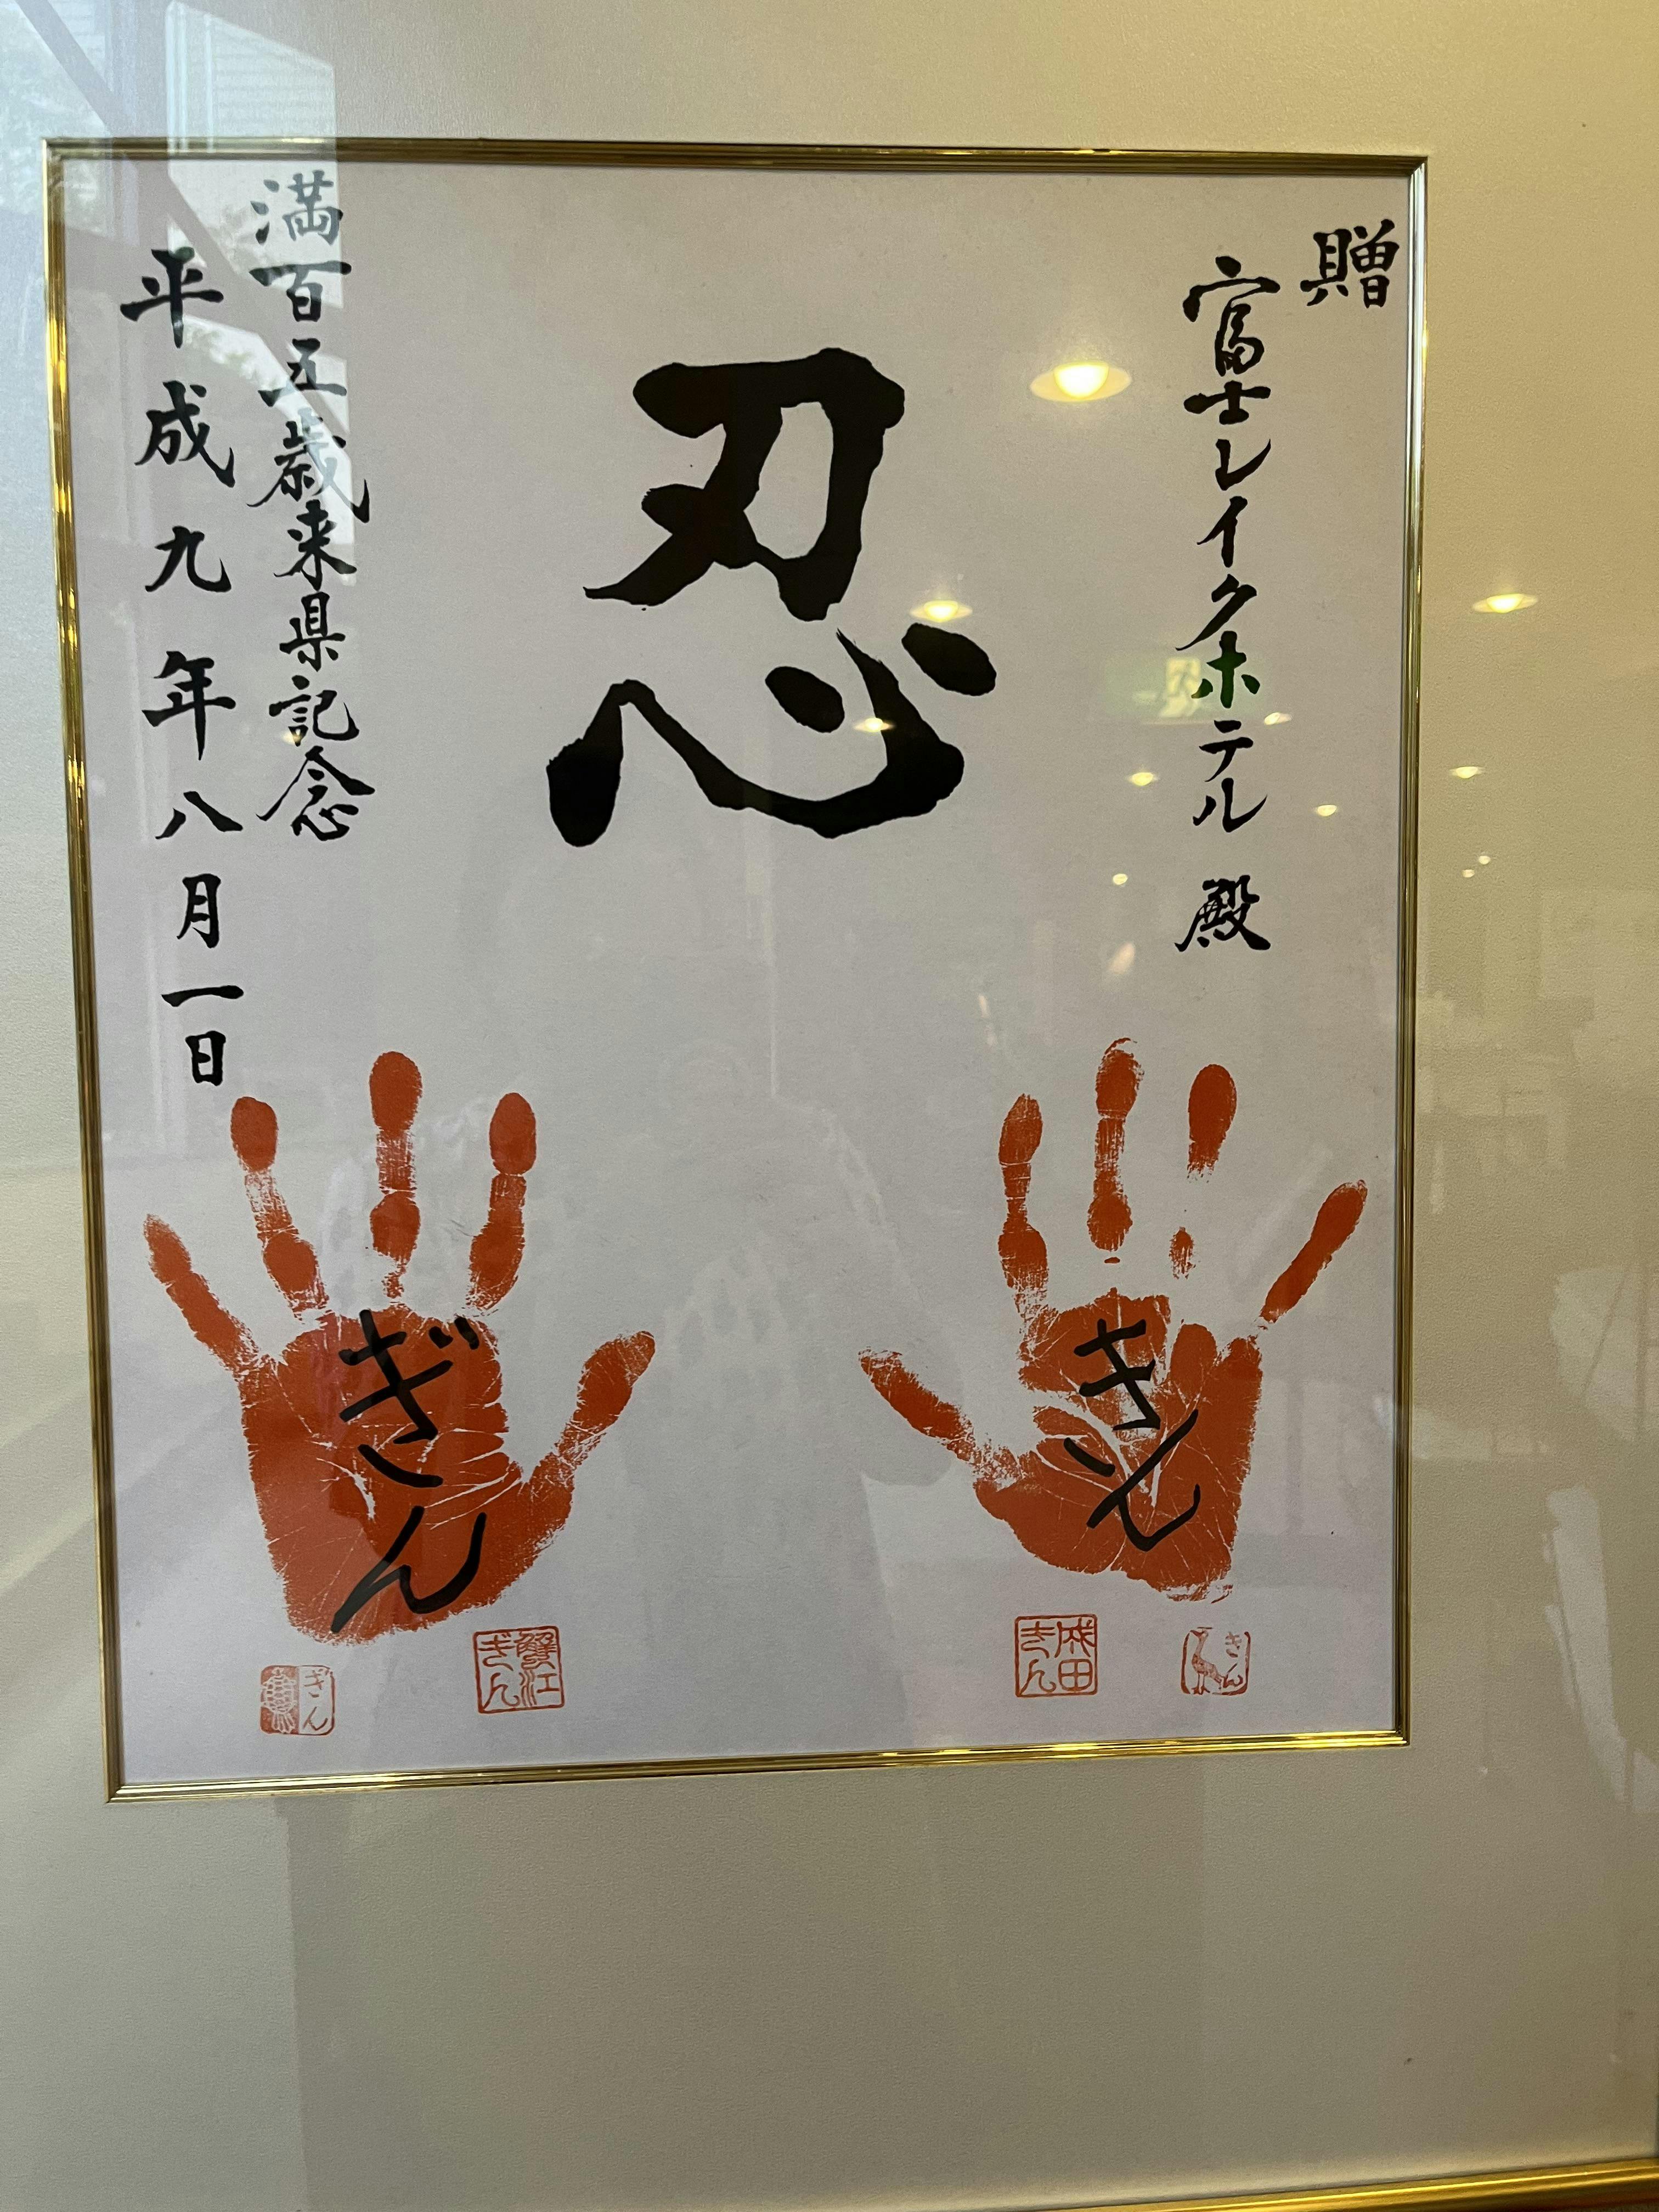 贈
富士レイクホテル 殿
忍
満百五歳来県記念
平成九年八月一日
きん
ぎん
きん
成田きん
蟹江ぎん
ぎん